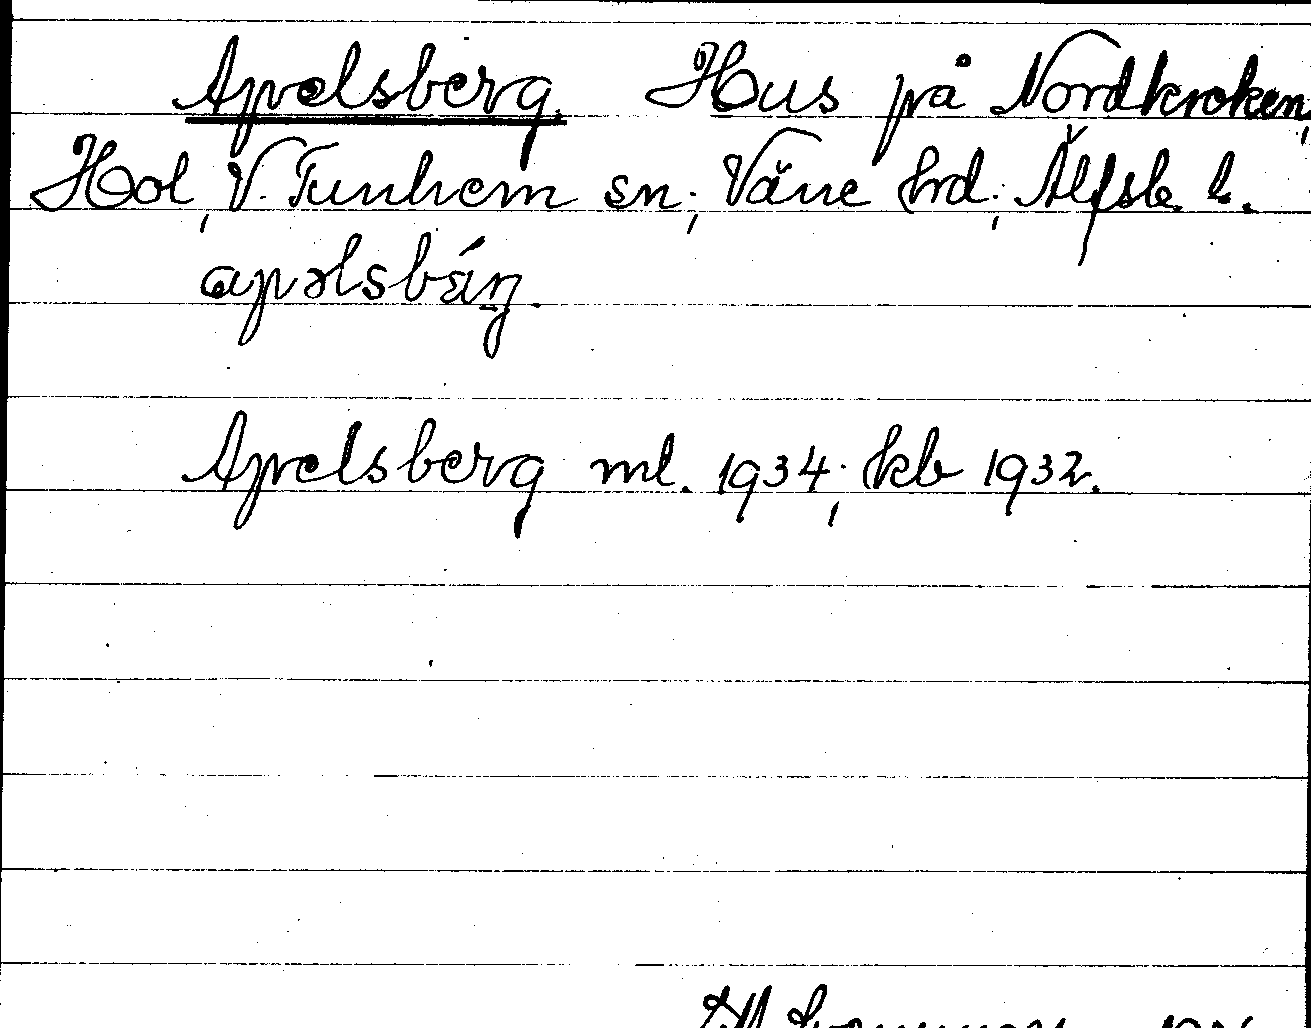 Apelsberg. Hus på Nordkroken,
Hol, V. Tunhem sn; Väne hrd; Älfsb. l.
apəlsbáŋ.
Apelsberg ml. 1934; kb 1932.